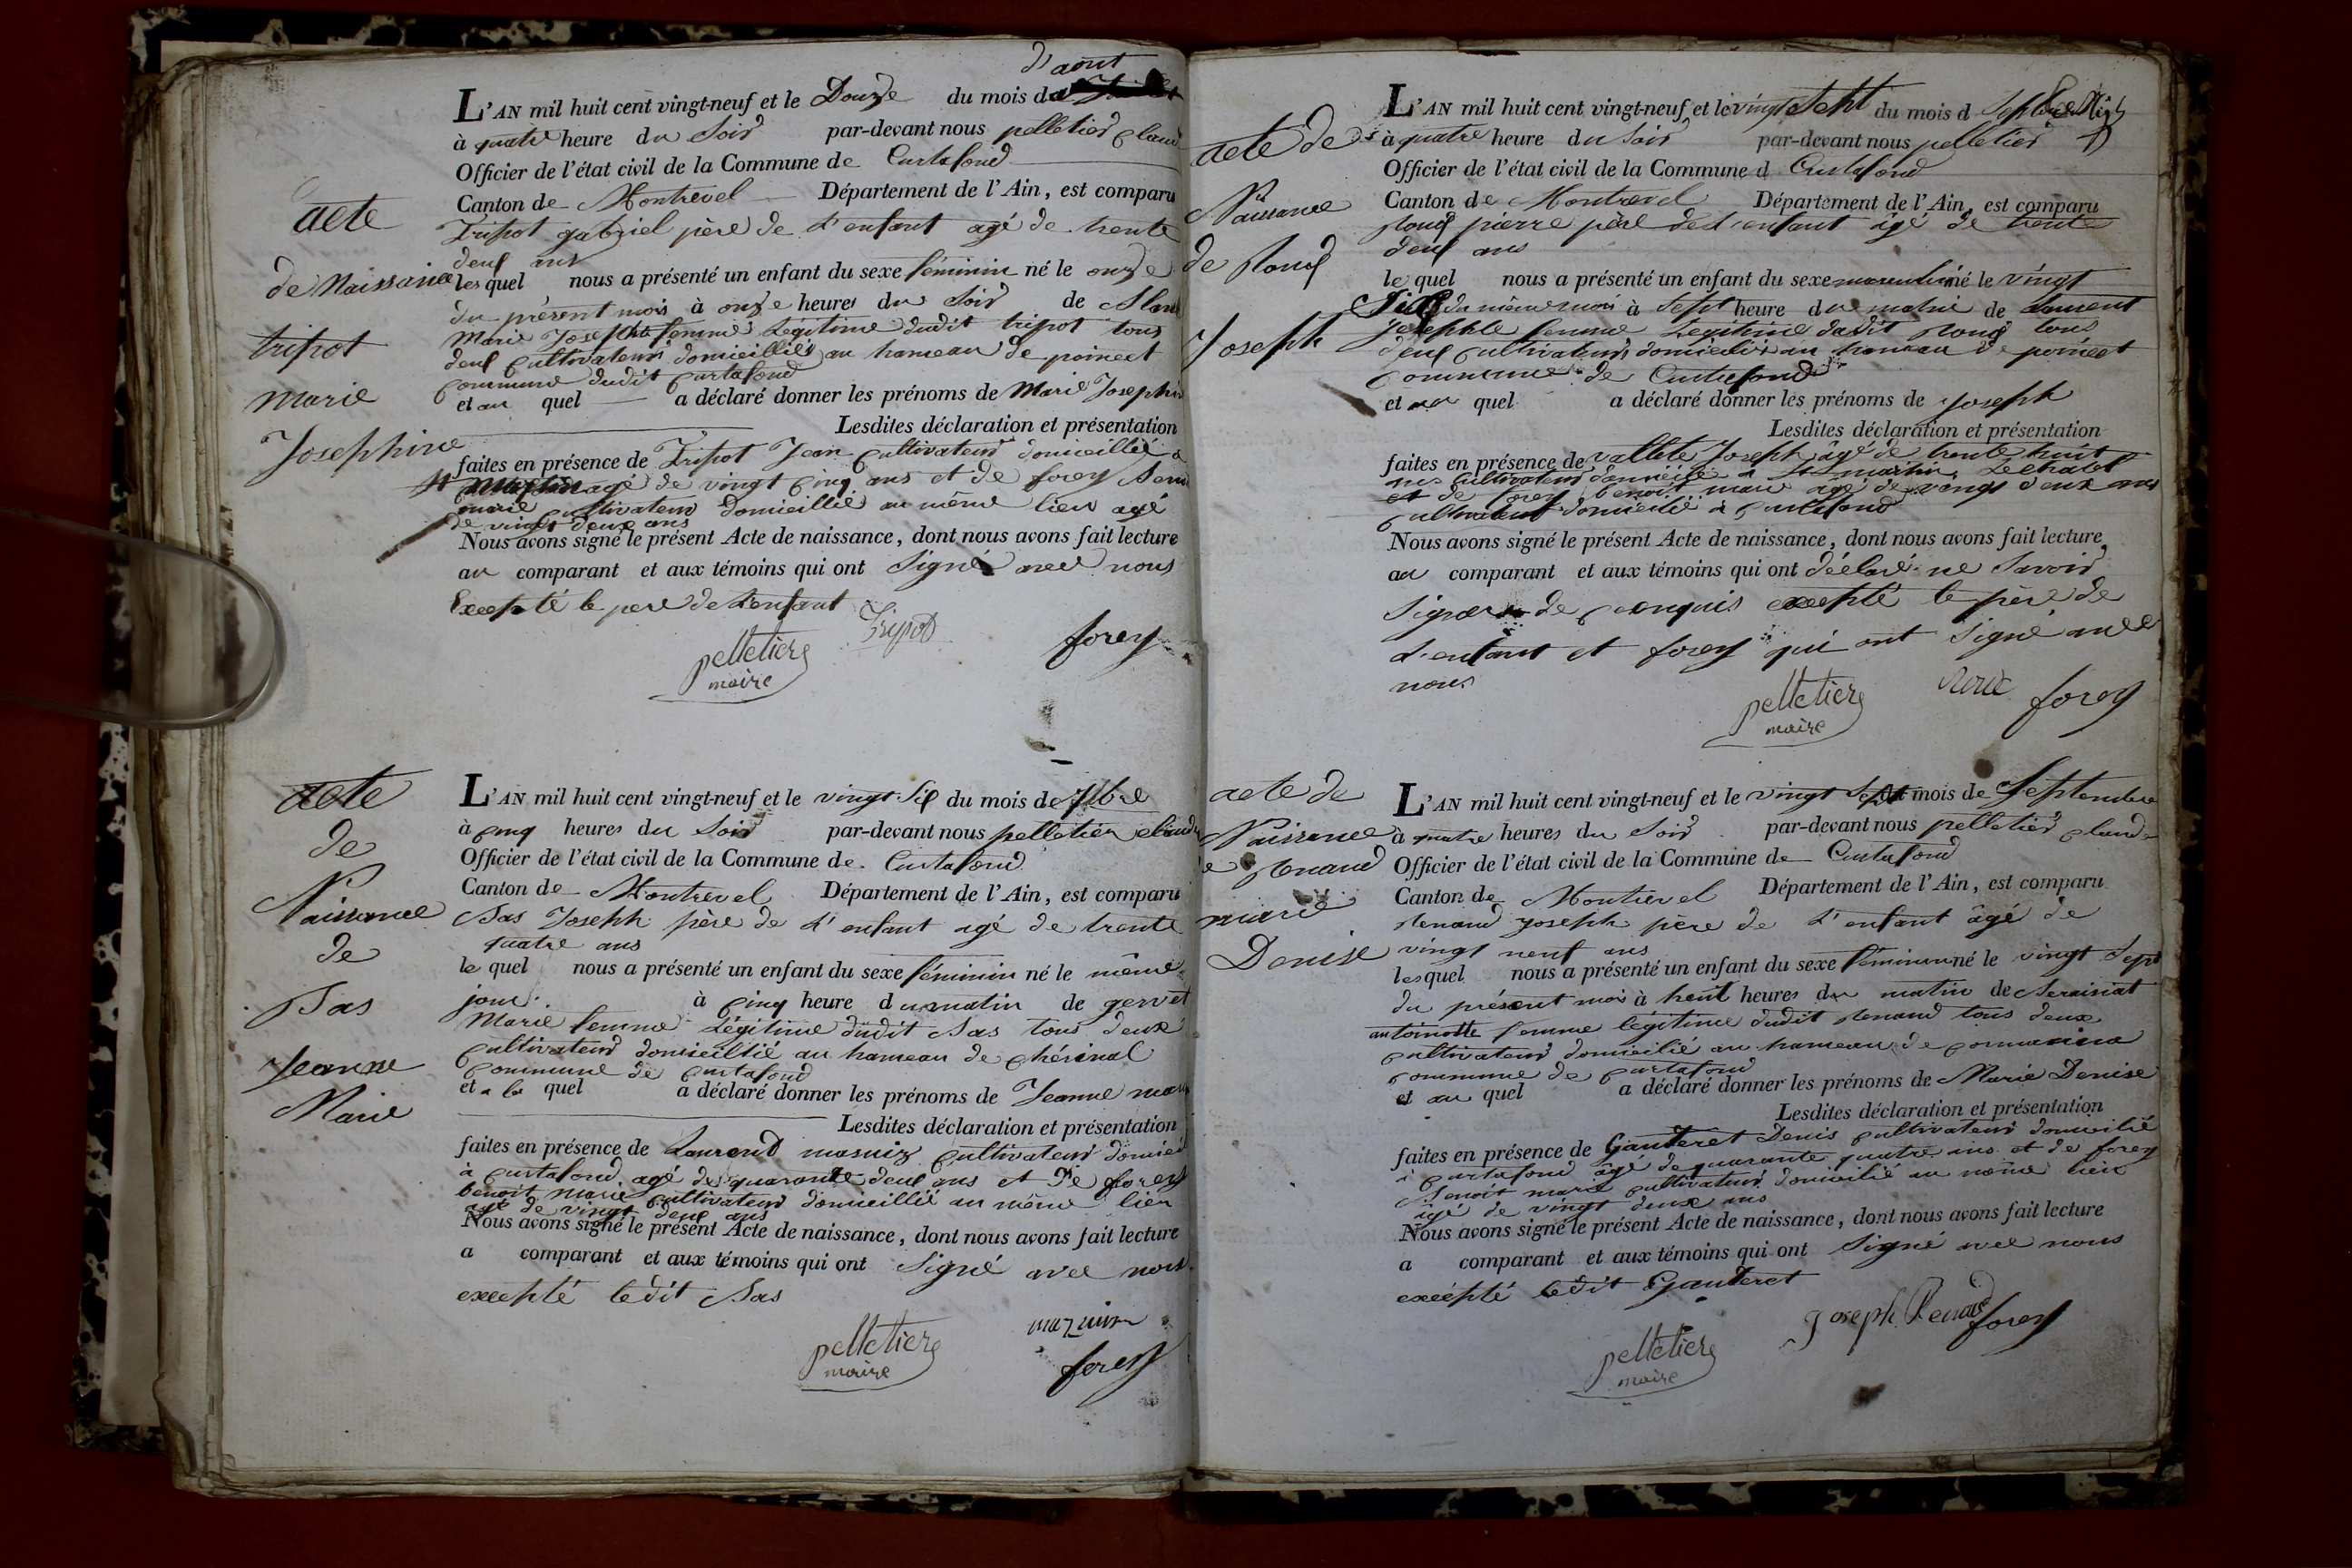 acte
de Naissance
tripot
marie
Josephine
d'aout
L'AN mil huit cent vingt-neuf et le Douze du mois d
à quatre heure du Soir par-devant nous pelletier Claud
Officier de l'état civil de la Commune de Curtafond
Canton de Montrevel Département de l'Ain, est comparu
Tripot gabriel père de l'enfant agé de trente
deux ans
les quel nous a présenté un enfant du sexe féminin né le onze
du présent mois à onze heures du Soir de
Marie Josephte femme Légitime dudit tripot tous
deux Cultivateurs domicilliés au hameau de poincet
Commune dudit Curtafond
et au quel a déclaré donner les prénoms de Marie Josephin
Lesdites déclaration et présentation
faites en présence de Tripot Jean Cultivateur domicillié a
St Martin agé de vingt Cinq ans et de forey Benoi
marie Cultivateur domicillié au même lieu agé
de vingt deux ans
Nous avons signé le présent Acte de naissance, dont nous avons fait lecture
au comparant et aux témoins qui ont Signé avec nous
Excepté le pere de l'enfant
Tripot
forey
pelletier
maire
acte
de
Naissance
de
Sas
Jeanne
Marie
L'AN mil huit cent vingt-neuf et le vingt Six du mois de 7bre
à Cinq heures du Soir par-devant nous pelletier claude
Officier de l'état civil de la Commune de Curtafond
Canton de Montrevel Département de l'Ain, est comparu
Sas Joseph père de l'enfant agé de trente
quatre ans
le quel nous a présenté un enfant du sexe féminin né le même
jour à Cinq heure du matin de gervet
Marie femme Légitime dudit Sas tous deux
Cultivateur domicillié au hameau de
Commune de Curtafond
et a la quel a déclaré donner les prénoms de Jeanne mari
Lesdites déclaration et présentation
faites en présence de Laurend Cultivateur domici
à Curtafond agé de quarante deux ans et De forey
benoit marie Cultivateur domicillié au même lieu
agé de vingt deux ans
Nous avons signé le présent Acte de naissance, dont nous avons fait lecture
a comparant et aux témoins qui ont Signé avec nous
excepté ledit Sas
pelletier
maire
forey
acte de
Naissance
de
Joseph
L'AN mil huit cent vingt-neuf et le vingt Sept du mois d
à quatre heure du Soir par-devant nous pelletier
Officier de l'état civil de la Commune d Curtafond
Canton de Montrevel Département de l'Ain, est comparu
pierre père de l'enfant âgé de trente
deux ans
le quel nous a présenté un enfant du sexe masculin né le vingt
Six du même mois à Sept heure du matin de Laurent
Josephte femme Légitime dudit tous
deux Cultivateurs domiciliés au hameau de poincet
Commune de Curtafond
et au quel a déclaré donner les prénoms de Joseph
Lesdites déclaration et présentation
faites en présence de vallete Joseph âgé de trente huit
ans Cultivateur domicilié à St martin Le chatel
et de forey benoit marie âgé de vingt deux ans
Cultivateur domicilié à Curtafond
Nous avons signé le présent Acte de naissance, dont nous avons fait lecture
au comparant et aux témoins qui ont déclaré ne Savoir
Signer de ce enquis excepté le père de
l'enfant et forey qui ont Signé avec
nous
pelletier
maire
forey
acte de
Naissance
de Renaud
marie
Denise
L'AN mil huit cent vingt-neuf et le vingt Sept du mois de Septembre
à quatre heures du Soir par-devant nous pelletier Claude
Officier de l'état civil de la Commune de Curtafond
Canton de Montrevel Département de l'Ain, est comparu
Renaud joseph père de l'enfant âgé de
vingt neuf ans
les quel nous a présenté un enfant du sexe féminin né le vingt Sept
du présent mois à huit heures du matin de
antoinette femme légitime dudit Renaud tous deux
Cultivateur domicilié au hameau de
Commune de Curtafond
et au quel a déclaré donner les prénoms de Marie Denise
Lesdites déclaration et présentation
faites en présence de Gauteret Denis Cultivateur domicilié
à Curtafond âgé de quarante quatre ans et de forey
Benoit marie Cultivateur domicilié au même lieu
âgé de vingt deux ans
Nous avons signé le présent Acte de naissance, dont nous avons fait lecture
a comparant et aux témoins qui ont Signé avec nous
excépté ledit Gauteret
joseph Renaud
forey
pelletier
maire